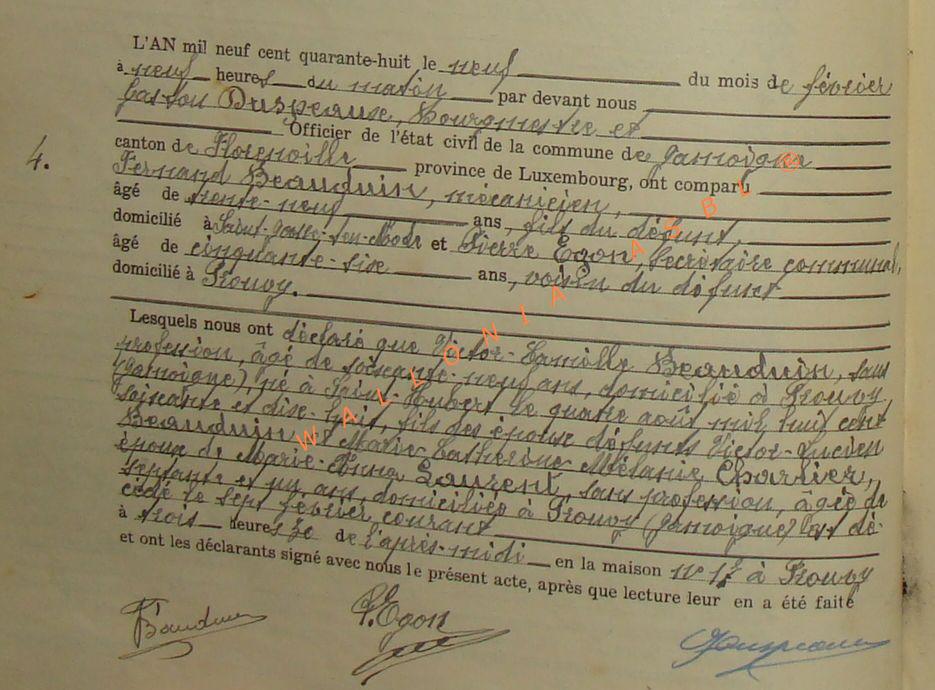 L'AN mil neuf cent quarante-huit le neuf du mois de février
à neuf heures du matin par devant nous
Gaston Duspeaux, Bourgmestre et
Officier de l'état civil de la commune de Jamoigne
4.
canton de Florenville province de Luxembourg, ont comparu
Fernand Beauduin, mécanicien,
âgé de trente-neuf ans, fils du défunt,
domicilié à et Pierre Egon, Secrétaire communal,
âgé de cinquante-six ans, voisin du défunt
domicilié à Prouvy.
Lesquels nous ont déclaré que Victor-Camille Beauduin, sans
profession, âgé de soixante-neuf ans, domicilié à Prouvy
(Jamoigne), né à Saint-Hubert le quatre août mil huit cent
soixante et dix-huit, fils des époux défunts Victor-Lucien
Beauduin et Marie-Catherine-Mélanie Charlier,
époux de Marie-Anna Laurent, sans profession, âgée de
septante et un ans, domiciliée à Prouvy (Jamoigne) est dé-
cédé le sept février courant
à trois heures 30 de l'après-midi en la maison n° à Prouvy
et ont les déclarants signé avec nous le présent acte, après que lecture leur en a été faite
P. Egon
WALLONIA ASBL